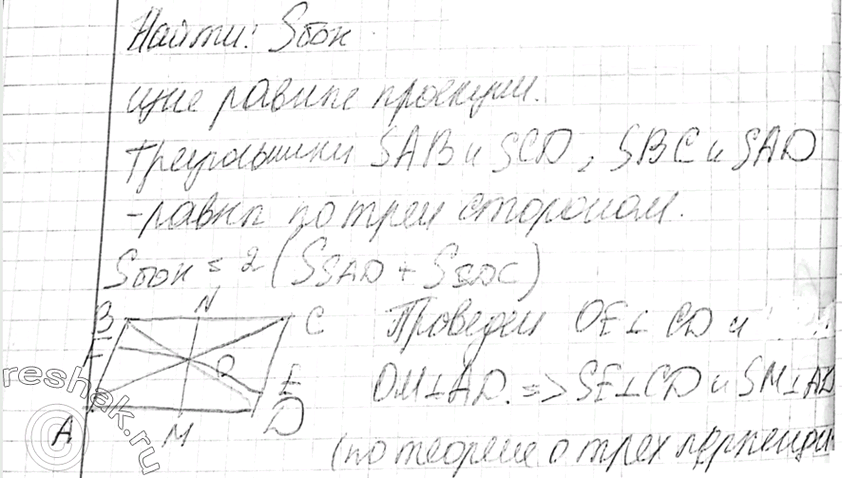 Найти: Sбок
щие равные проекции.
Треугольники SAB и SCD, SBC и SAD
- равны по трем сторонам.
Sбок = 2 (SSAD + SSDC)
B N C
Проведем OE ⊥ CD и
F O E
OM ⊥ AD. => SE ⊥ CD и SM ⊥ AD
A M D
(по теореме о трех перпенди
reshak.ru